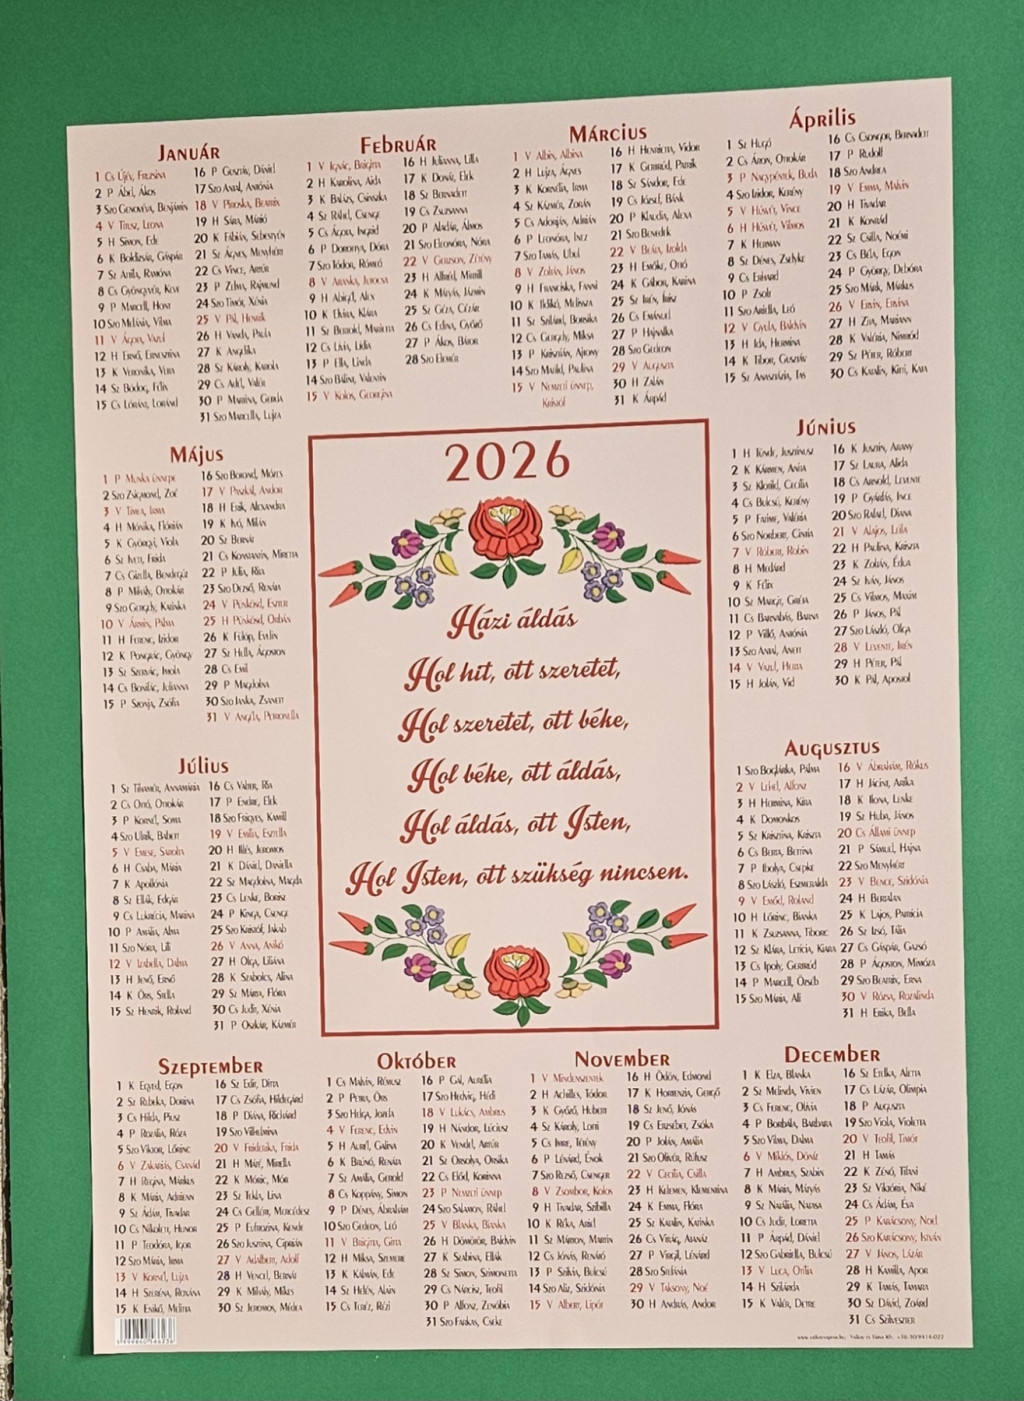 Január
1 Cs Újév, Fruzsina
2 P Ábel, Ákos
3 Szo Genovéva, Benjámin
4 V Titusz, Leona
5 H Simon, Ede
6 K Boldizsár, Gáspár
7 Sz Attila, Ramóna
8 Cs Gyöngyvér, Keve
9 P Marcell, Honor
10 Szo Melánia, Vilma
11 V Ágota, Vazul
12 H Ernő, Ernesztina
13 K Veronika, Vera
14 Sz Bódog, Félix
15 Cs Lóránt, Loránd
16 P Gusztáv, Dániel
17 Szo Antal, Antónia
18 V Piroska, Beatrix
19 H Sára, Márió
20 K Fábián, Sebestyén
21 Sz Ágnes, Menyhért
22 Cs Vince, Artúr
23 P Zelma, Rajmund
24 Szo Timót, Xénia
25 V Pál, Henrik
26 H Vanda, Paula
27 K Angelika
28 Sz Károly, Karola
29 Cs Adél, Valér
30 P Martina, Gerda
31 Szo Marcella, Lujza
Február
1 V Ignác, Brigitta
2 H Karolina, Aida
3 K Balázs, Csinszka
4 Sz Ráhel, Csenge
5 Cs Ágota, Ingrid
6 P Dorottya, Dóra
7 Szo Tódor, Rómeó
8 V Aranka, Jeromos
9 H Abigél, Alex
10 K Elvira, Klára
11 Sz Bertold, Marietta
12 Cs Lívia, Lídia
13 P Ella, Linda
14 Szo Bálint, Valentin
15 V Kolos, Georgina
16 H Julianna, Lilla
17 K Donát, Elek
18 Sz Bernadett
19 Cs Zsuzsanna
20 P Aladár, Álmos
21 Szo Eleonóra, Nóra
22 V Gerzson, Zétény
23 H Alfréd, Mirtill
24 K Mátyás, Jázmin
25 Sz Géza, Cézár
26 Cs Edina, Győző
27 P Ákos, Bátor
28 Szo Elemér
Március
1 V Albin, Albina
2 H Lujza, Ágnes
3 K Kornélia, Irma
4 Sz Kázmér, Zorán
5 Cs Adorján, Adrián
6 P Leonóra, Inez
7 Szo Tamás, Ubul
8 V Zoltán, János
9 H Franciska, Fanni
10 K Ildikó, Melissza
11 Sz Szilárd, Borsika
12 Cs Gergely, Miksa
13 P Krisztián, Ajtony
14 Szo Matild, Paulina
15 V Nemzeti ünnep,
Kristóf
16 H Henrietta, Vidor
17 K Gertrúd, Patrik
18 Sz Sándor, Ede
19 Cs József, Bánk
20 P Klaudia, Alexa
21 Szo Benedek
22 V Beáta, Izolda
23 H Emőke, Ottó
24 K Gábor, Karina
25 Sz Irén, Írisz
26 Cs Emánuel
27 P Hajnalka
28 Szo Gedeon
29 V Auguszta
30 H Zalán
31 K Árpád
Április
1 Sz Hugó
2 Cs Áron, Ottokár
3 P Nagypéntek, Buda
4 Szo Izidor, Kerény
5 V Húsvét, Vince
6 H Húsvét, Vilmos
7 K Herman
8 Sz Dénes, Zsolyke
9 Cs Erhard
10 P Zsolt
11 Szo Ariella, Leó
12 V Gyula, Baldvin
13 H Ida, Hermina
14 K Tibor, Gusztáv
15 Sz Anasztázia, Tas
16 Cs Csongor, Bernadett
17 P Rudolf
18 Szo Andrea
19 V Emma, Malvin
20 H Tivadar
21 K Konrád
22 Sz Csilla, Noémi
23 Cs Béla, Egon
24 P György, Debóra
25 Szo Márk, Márkus
26 V Ervin, Ervina
27 H Zita, Mariann
28 K Valéria, Nimród
29 Sz Péter, Róbert
30 Cs Katalin, Kitti, Kata
Május
1 P Munka ünnepe
2 Szo Zsigmond, Zoé
3 V Tímea, Irma
4 H Mónika, Flórián
5 K Györgyi, Viola
6 Sz Ivett, Frida
7 Cs Gizella, Bendegúz
8 P Mihály, Ottokár
9 Szo Gergely, Katinka
10 V Ármin, Pálma
11 H Ferenc, Izidor
12 K Pongrác, Gyöngy
13 Sz Szervác, Imola
14 Cs Bonifác, Julianna
15 P Szonja, Zsófia
16 Szo Botond, Mózes
17 V Paszkál, Andor
18 H Erik, Alexandra
19 K Ivó, Milán
20 Sz Bernát
21 Cs Konstantin, Miretta
22 P Júlia, Rita
23 Szo Dezső, Renáta
24 V Pünkösd, Eszter
25 H Pünkösd, Orbán
26 K Fülöp, Evelin
27 Sz Hella, Ágoston
28 Cs Emil
29 P Magdolna
30 Szo Janka, Zsanett
31 V Angéla, Petronella
2026
Házi áldás
Hol hit, ott szeretet,
Hol szeretet, ott béke,
Hol béke, ott áldás,
Hol áldás, ott Isten,
Hol Isten, ott szükség nincsen.
Június
1 H Tünde, Jusztinusz
2 K Kármen, Anita
3 Sz Klotild, Cecília
4 Cs Bulcsú, Kerény
5 P Fatime, Valéria
6 Szo Norbert, Cintia
7 V Róbert, Robin
8 H Medárd
9 K Félix
10 Sz Margit, Gréta
11 Cs Barnabás, Barna
12 P Villő, Antónia
13 Szo Antal, Anett
14 V Vazul, Herta
15 H Jolán, Vid
16 K Jusztin, Arany
17 Sz Laura, Alida
18 Cs Arnold, Levente
19 P Gyárfás, Ince
20 Szo Rafael, Diána
21 V Alajos, Leila
22 H Paulina, Kriszta
23 K Zoltán, Édua
24 Sz Iván, János
25 Cs Vilmos, Maxim
26 P János, Pál
27 Szo László, Olga
28 V Levente, Irén
29 H Péter, Pál
30 K Pál, Apostol
Július
1 Sz Tihamér, Annamária
2 Cs Ottó, Ottokár
3 P Kornél, Soma
4 Szo Ulrik, Babett
5 V Emese, Sarolta
6 H Csaba, Mária
7 K Apollónia
8 Sz Ellák, Edgár
9 Cs Lukrécia, Marina
10 P Amália, Alma
11 Szo Nóra, Lili
12 V Izabella, Dalma
13 H Jenő, Ernő
14 K Örs, Stella
15 Sz Henrik, Roland
16 Cs Valter, Rita
17 P Endre, Elek
18 Szo Frigyes, Kamill
19 V Emília, Esztella
20 H Illés, Jeromos
21 K Dániel, Daniella
22 Sz Magdolna, Magda
23 Cs Lenke, Borisz
24 P Kinga, Csenge
25 Szo Kristóf, Jakab
26 V Anna, Anikó
27 H Olga, Liliána
28 K Szabolcs, Alina
29 Sz Márta, Flóra
30 Cs Judit, Xénia
31 P Oszkár, Kázmér
Augusztus
1 Szo Boglárka, Pálma
2 V Lehel, Alfonz
3 H Hermina, Kíra
4 K Domonkos
5 Sz Krisztina, Kriszta
6 Cs Berta, Bettina
7 P Ibolya, Csepke
8 Szo László, Eszmeralda
9 V Emőd, Roland
10 H Lőrinc, Bianka
11 K Zsuzsanna, Tiborc
12 Sz Klára, Letícia, Kiara
13 Cs Ipoly, Gertrúd
14 P Marcell, Özséb
15 Szo Mária, Ali
16 V Ábrahám, Rókus
17 H Jácint, Arika
18 K Ilona, Lenke
19 Sz Huba, János
20 Cs Állami ünnep
21 P Sámuel, Hajna
22 Szo Menyhért
23 V Bence, Szidónia
24 H Bertalan
25 K Lajos, Patrícia
26 Sz Izsó, Tália
27 Cs Gáspár, Gazsó
28 P Ágoston, Mimóza
29 Szo Beatrix, Erna
30 V Rózsa, Rozalinda
31 H Erika, Bella
Szeptember
1 K Egyed, Egon
2 Sz Rebeka, Dorina
3 Cs Hilda, Piusz
4 P Rozália, Róza
5 Szo Viktor, Lőrinc
6 V Zakariás, Csanád
7 H Regina, Márkus
8 K Mária, Adrienn
9 Sz Ádám, Tivadar
10 Cs Nikolett, Hunor
11 P Teodóra, Igor
12 Szo Mária, Irma
13 V Kornél, Lujza
14 H Szeréna, Roxána
15 K Enikő, Melitta
16 Sz Edit, Ditta
17 Cs Zsófia, Hildegárd
18 P Diána, Richárd
19 Szo Vilhelmina
20 V Friderika, Frida
21 H Máté, Mirella
22 K Móric, Mór
23 Sz Tekla, Lina
24 Cs Gellért, Mercédesz
25 P Eufrozina, Kende
26 Szo Jusztina, Ciprián
27 V Adalbert, Adolf
28 H Vencel, Bernát
29 K Mihály, Mikes
30 Sz Jeromos, Médea
Október
1 Cs Malvin, Rómusz
2 P Petra, Örs
3 Szo Helga, Jozefa
4 V Ferenc, Edvin
5 H Aurél, Galina
6 K Brúnó, Renáta
7 Sz Amália, Gerold
8 Cs Koppány, Simon
9 P Dénes, Abrahám
10 Szo Gedeon, Leó
11 V Brigitta, Gitta
12 H Miksa, Szemere
13 K Kálmán, Ede
14 Sz Helén, Alain
15 Cs Teréz, Rézi
16 P Gál, Aurélia
17 Szo Hedvig, Hédi
18 V Lukács, Ambrus
19 H Nándor, Lúciusz
20 K Vendel, Artúr
21 Sz Orsolya, Orsika
22 Cs Előd, Korinna
23 P Nemzeti ünnep
24 Szo Salamon, Ráhel
25 V Blanka, Bianka
26 H Dömötör, Baldvin
27 K Szabina, Ellák
28 Sz Simon, Szimonetta
29 Cs Nárcisz, Teofil
30 P Alfonz, Zenóbia
31 Szo Farkas, Cseke
November
1 V Mindenszentek
2 H Achilles, Tódor
3 K Győző, Hubert
4 Sz Károly, Lotti
5 Cs Imre, Tétény
6 P Lénárd, Énok
7 Szo Rezső, Csenger
8 V Zsombor, Kolos
9 H Tivadar, Szibilla
10 K Réka, Ariel
11 Sz Márton, Martin
12 Cs Jónás, Renátó
13 P Szilvia, Bulcsú
14 Szo Aliz, Szidónia
15 V Albert, Lipót
16 H Ödön, Edmond
17 K Hortenzia, Gergő
18 Sz Jenő, Jónás
19 Cs Erzsébet, Zsóka
20 P Jolán, Amália
21 Szo Olivér, Rúfusz
22 V Cecília, Csilla
23 H Kelemen, Klementina
24 K Emma, Flóra
25 Sz Katalin, Katinka
26 Cs Virág, Atanáz
27 P Virgil, Lénárd
28 Szo Stefánia
29 V Taksony, Noé
30 H András, Andor
December
1 K Elza, Blanka
2 Sz Melinda, Vivien
3 Cs Ferenc, Olívia
4 P Borbála, Barbara
5 Szo Vilma, Dalma
6 V Miklós, Döníz
7 H Ambrus, Szabin
8 K Mária, Mátyás
9 Sz Natália, Natasa
10 Cs Judit, Loretta
11 P Árpád, Dániel
12 Szo Gabriella, Bulcsú
13 V Luca, Otília
14 H Szilárda
15 K Valér, Detre
16 Sz Etelka, Aletta
17 Cs Lázár, Olimpia
18 P Auguszta
19 Szo Viola, Violetta
20 V Teofil, Timót
21 H Tamás
22 K Zénó, Titani
23 Sz Viktória, Niké
24 Cs Ádám, Éva
25 P Karácsony, Noel
26 Szo Karácsony, István
27 V János, Lázár
28 H Kamilla, Apor
29 K Tamás, Tamara
30 Sz Dávid, Zoárd
31 Cs Szilveszter